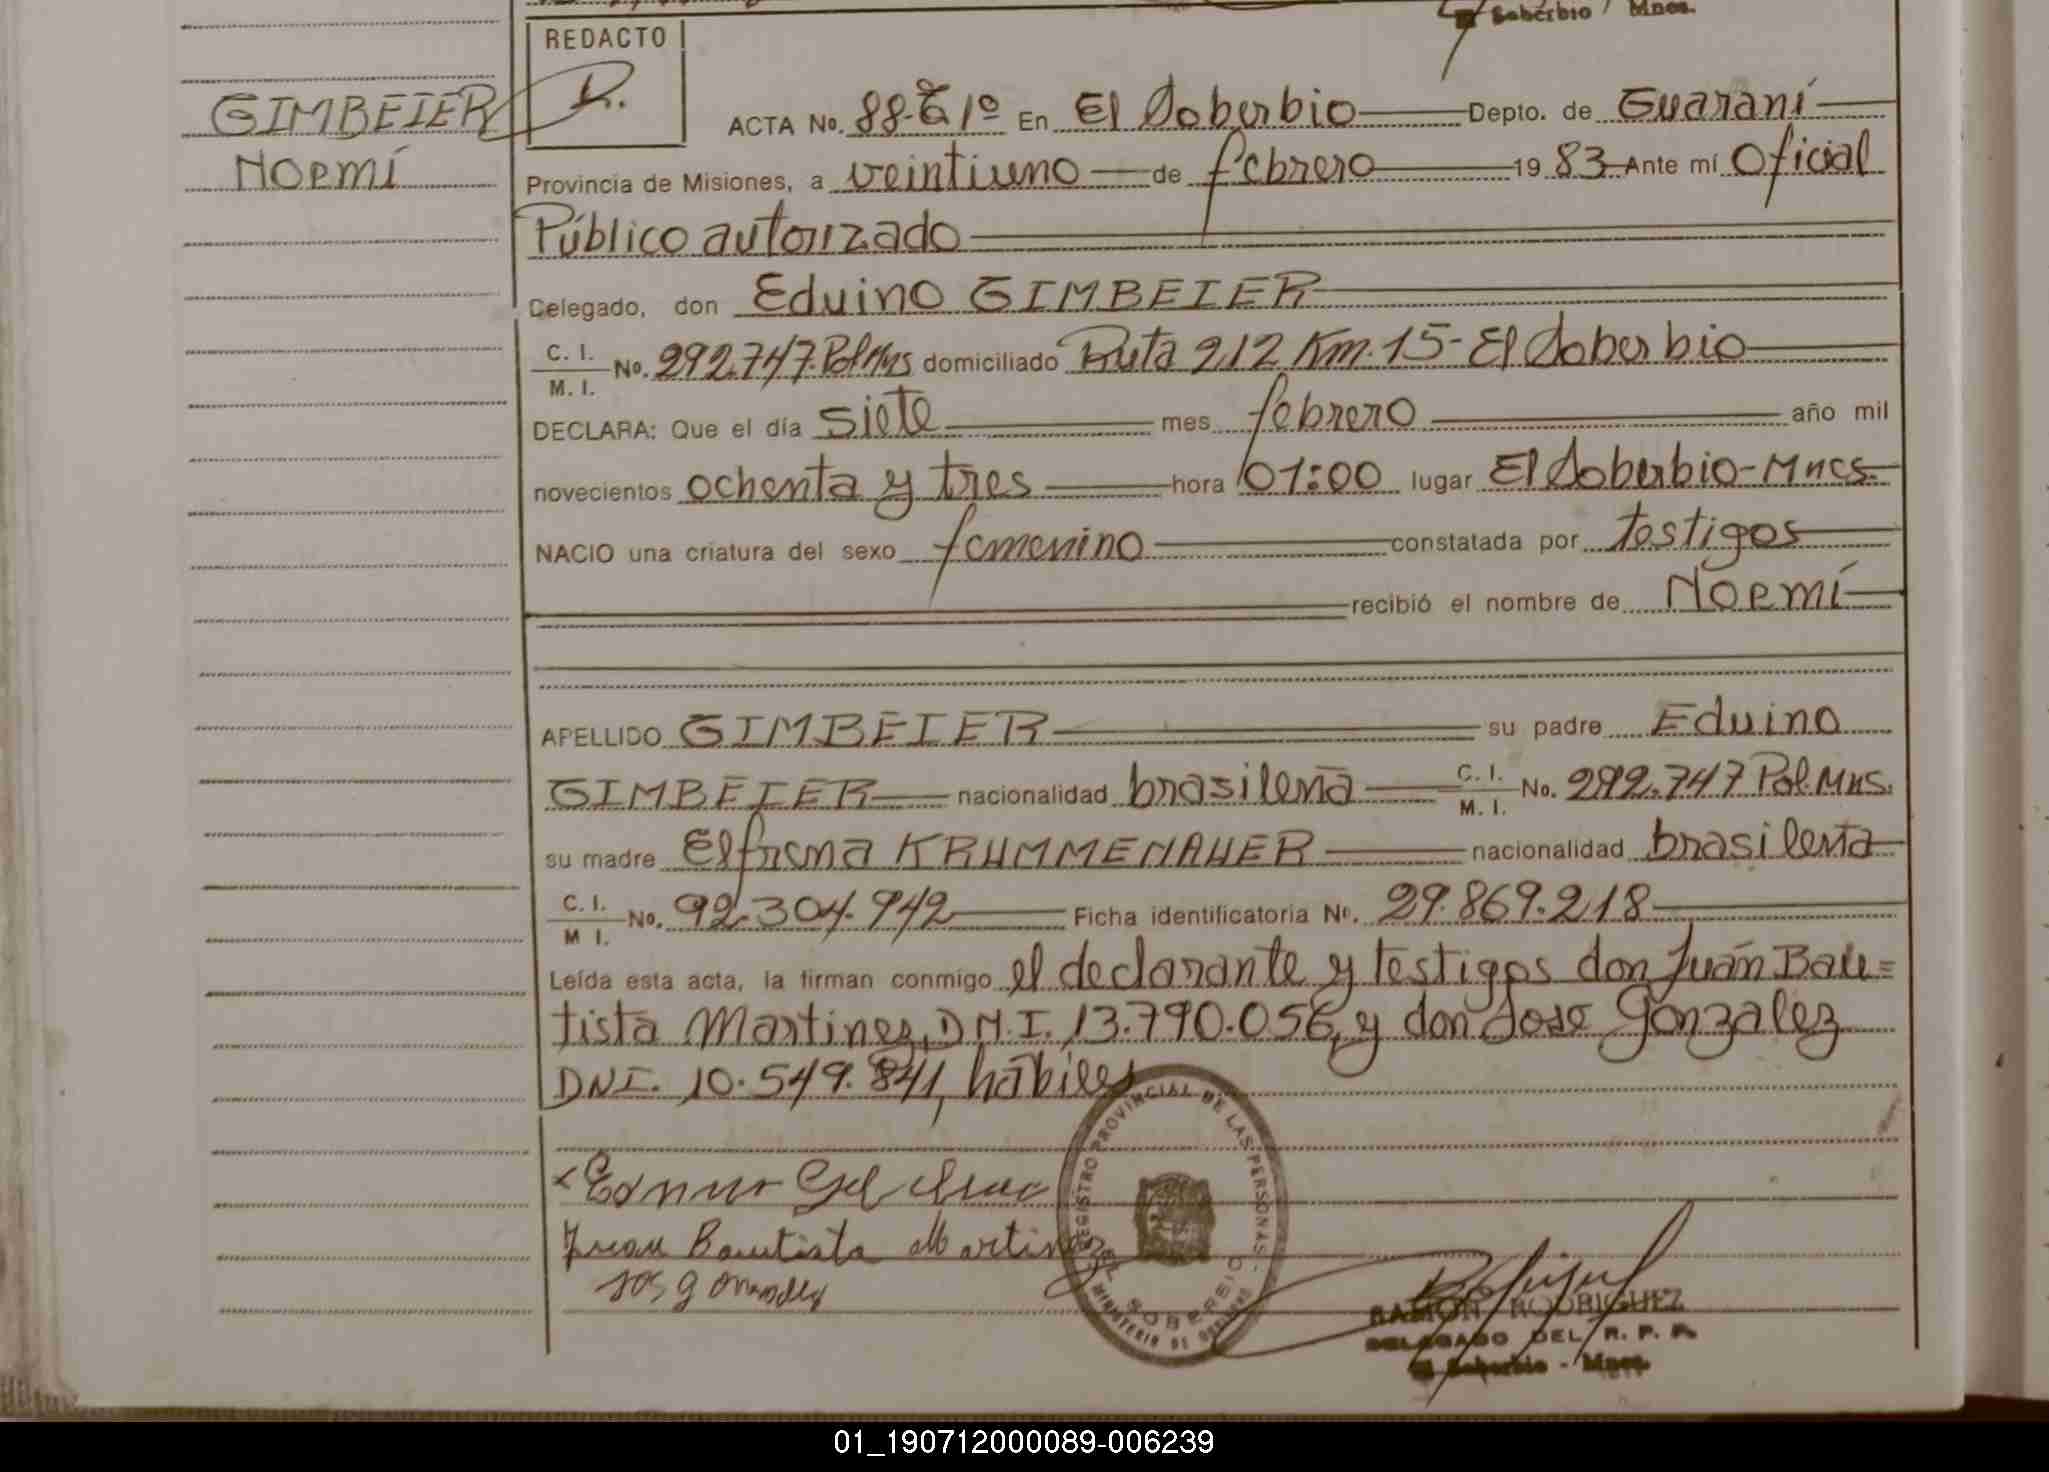 Soberbio / Mnes.
REDACTO
GIMBEIER
Noemí
ACTA No. 88-T 1º En El Soberbio Depto. de Guaraní
Provincia de Misiones, a veintiuno de febrero 19 83 Ante mí Oficial
Público autorizado
Celegado, don Eduino GIMBEIER
C. I. / M. I. No. 292.747 Pol Mns domiciliado Ruta 212 Km. 15 - El Soberbio
DECLARA: Que el día siete mes febrero año mil
novecientos ochenta y tres hora 01:00 lugar El Soberbio - Mnes
NACIO una criatura del sexo femenino constatada por testigos
recibió el nombre de Noemí
APELLIDO GIMBEIER su padre Eduino
GIMBEIER nacionalidad brasileña C. I. / M. I. No. 292.747 Pol. Mns.
su madre Elfrena KRUMMENAUER nacionalidad brasileña
C. I. / M I. No. 92.304.942 Ficha identificatoria Nº. 29.869.218
Leída esta acta, la firman conmigo el declarante y testigos don Juán Bau=
tista Martinez, D.N.I. 13.790.056, y don José Gonzalez
DNI. 10.549.841, hábiles
REGISTRO PROVINCIAL DE LAS PERSONAS
EL SOBERBIO
MINISTERIO DE GOBIERNO
Juan Bautista Martinez
RAMON RODRIGUEZ
DELEGADO DEL R. P. P.
El Soberbio - Mnes.
01_190712000089-006239